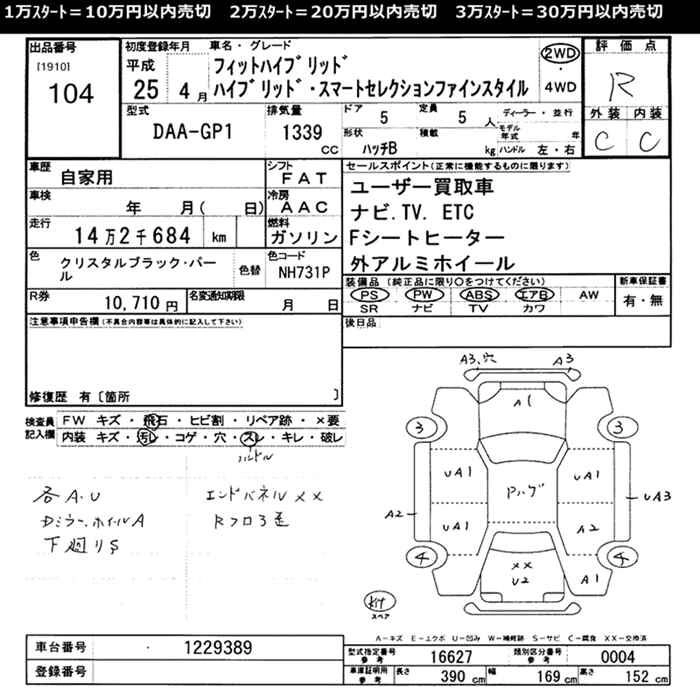 1万ｽﾀｰﾄ＝10万円以内売切　2万ｽﾀｰﾄ＝20万円以内売切　3万ｽﾀｰﾄ＝30万円以内売切
出品番号
[1910]
104
初度登録年月
平成
25 4月
車名・グレード
フィットハイブリッド
ハイブリッド・スマートセレクションファインスタイル
2WD
・
4WD
評価点
R
外装 内装
C C
型式
DAA-GP1
排気量
1339
cc
ドア
5
定員
5 人
形状
ハッチB
積載
kg
ディーラー・並行
モデル年式 年
ハンドル 左・右
車歴
自家用
シフト
FAT
車検
年 月( 日)
冷房
AAC
走行
14万2千684 km
燃料
ガソリン
色
クリスタルブラック・パール
色替
色コード
NH731P
R券
10,710 円
名変通知期限
月 日
セールスポイント(正常に機能するものに限ります)
ユーザー買取車
ナビ.TV. ETC
Fシートヒーター
外アルミホイール
装備品(純正品に限り○をつけてください)
PS PW ABS エアB AW
SR ナビ TV カワ
新車保証書
有・無
後日品
注意事項申告欄(不具合内容等は具体的に記入して下さい)
修復歴 有〔箇所 〕
検査員
記入欄
FW キズ・飛石・ヒビ割・リペア跡・×要
内装 キズ・汚レ・コゲ・穴・スレ・キレ・破レ
ハンドル
各A.U
Dミラー、ホイルA
下廻りS
エンドパネル××
A3、穴 A3
A1
3 3
UA1 UA1
Pハゲ
UA3
A2
UA1 A2
4 4
××
U2
A1
スペア
A-キズ E-エクボ U-凹み W-補修跡 S-サビ C-腐食 XX-交換済
車台番号
・ 1229389
登録番号
型式指定番号
参考
16627
類別区分番号
参考
0004
車庫証明用
参考
長さ 390 cm 幅 169 cm 高さ 152 cm